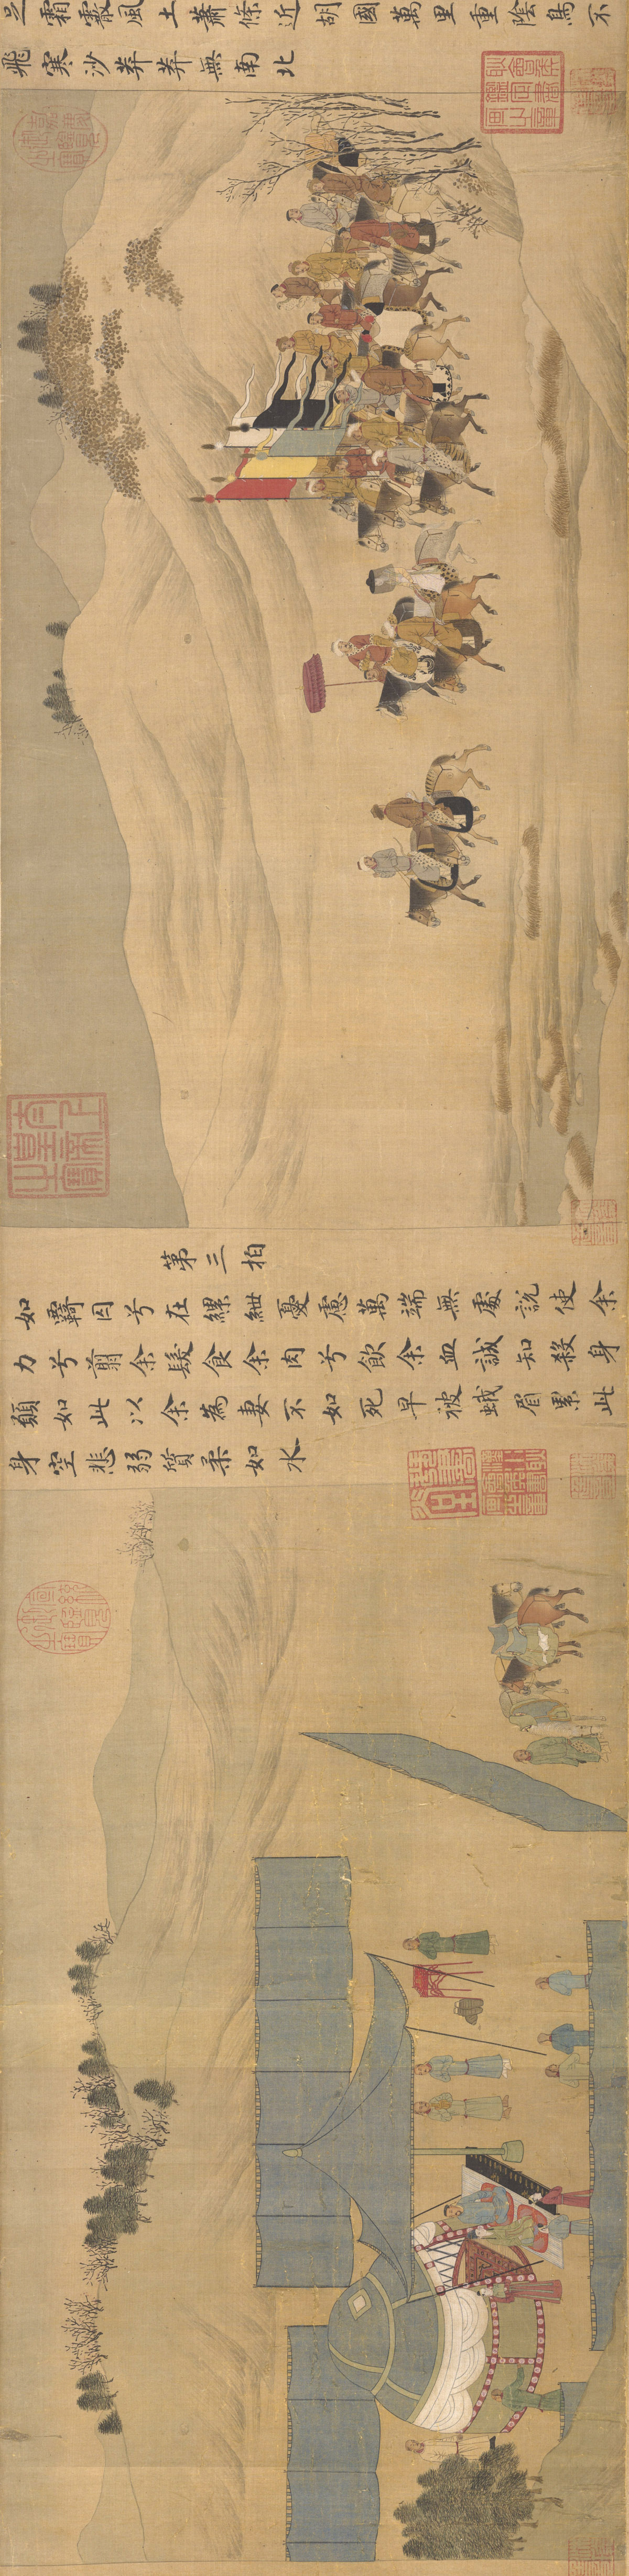 足霜霰風土蕭條近胡國萬里重陰鳥不
飛寒沙莽莽無南北
太上皇帝之寶
第三拍
如羇囚兮在縲紲憂慮萬端無處說使余
力兮翦余髮食余肉兮飲余血誠知殺身
願如此以余為妻不如死早被蛾眉累此
身空悲弱質柔如水